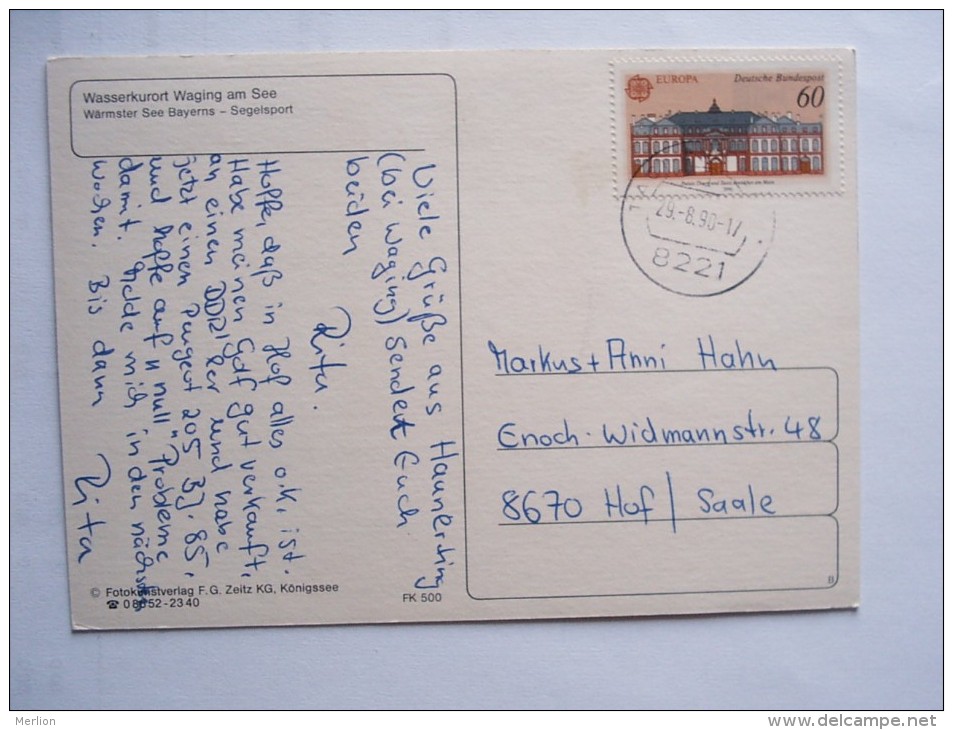 Wasserkurort Waging am See
Wärmster See Bayerns – Segelsport
EUROPA
Deutsche Bundespost
60
29.-8.90-17
8221
Viele Grüße aus
(bei Waging) sendet Euch
beiden
Rita.
Hoffe, daß in Hof alles o.k. ist.
Habe meinen Golf gut verkauft,
an einen DDR'ler und habe
jetzt einen Peugeot 205 BJ. 85,
und hoffe auf "null" Probleme
damit. Melde mich in den nächsten
Wochen. Bis dann Rita
Markus + Anni Hahn
Enoch-Widmannstr. 48
8670 Hof / Saale
© Fotokunstverlag F. G. Zeitz KG, Königssee
☎ 08652-2340
FK 500
B
Merlion
delcampe.net